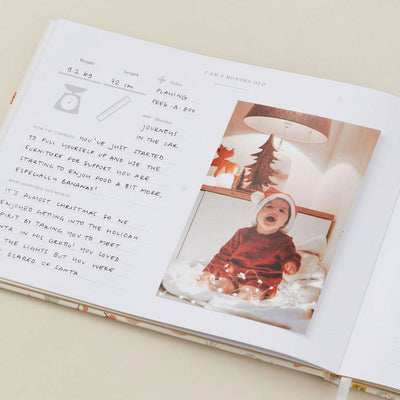 I AM 8 MONTHS OLD
Weight
9.2 kg
Length
72 cm
Likes
PLAYING
PEEK-A-BOO
Dislikes
JOURNEYS
IN THE CAR
HOW I'VE CHANGED
YOU'VE JUST STARTED
TO PULL YOURSELF UP AND USE THE
FURNITURE FOR SUPPORT. YOU ARE
STARTING TO ENJOY FOOD A BIT MORE,
ESPECIALLY BANANAS!
WHAT HAPPENED THIS MONTH
IT'S ALMOST CHRISTMAS SO WE
ENJOYED GETTING INTO THE HOLIDAY
SPIRIT BY TAKING YOU TO MEET
SANTA IN HIS GROTTO! YOU LOVED
THE LIGHTS BUT YOU WERE
SCARED OF SANTA